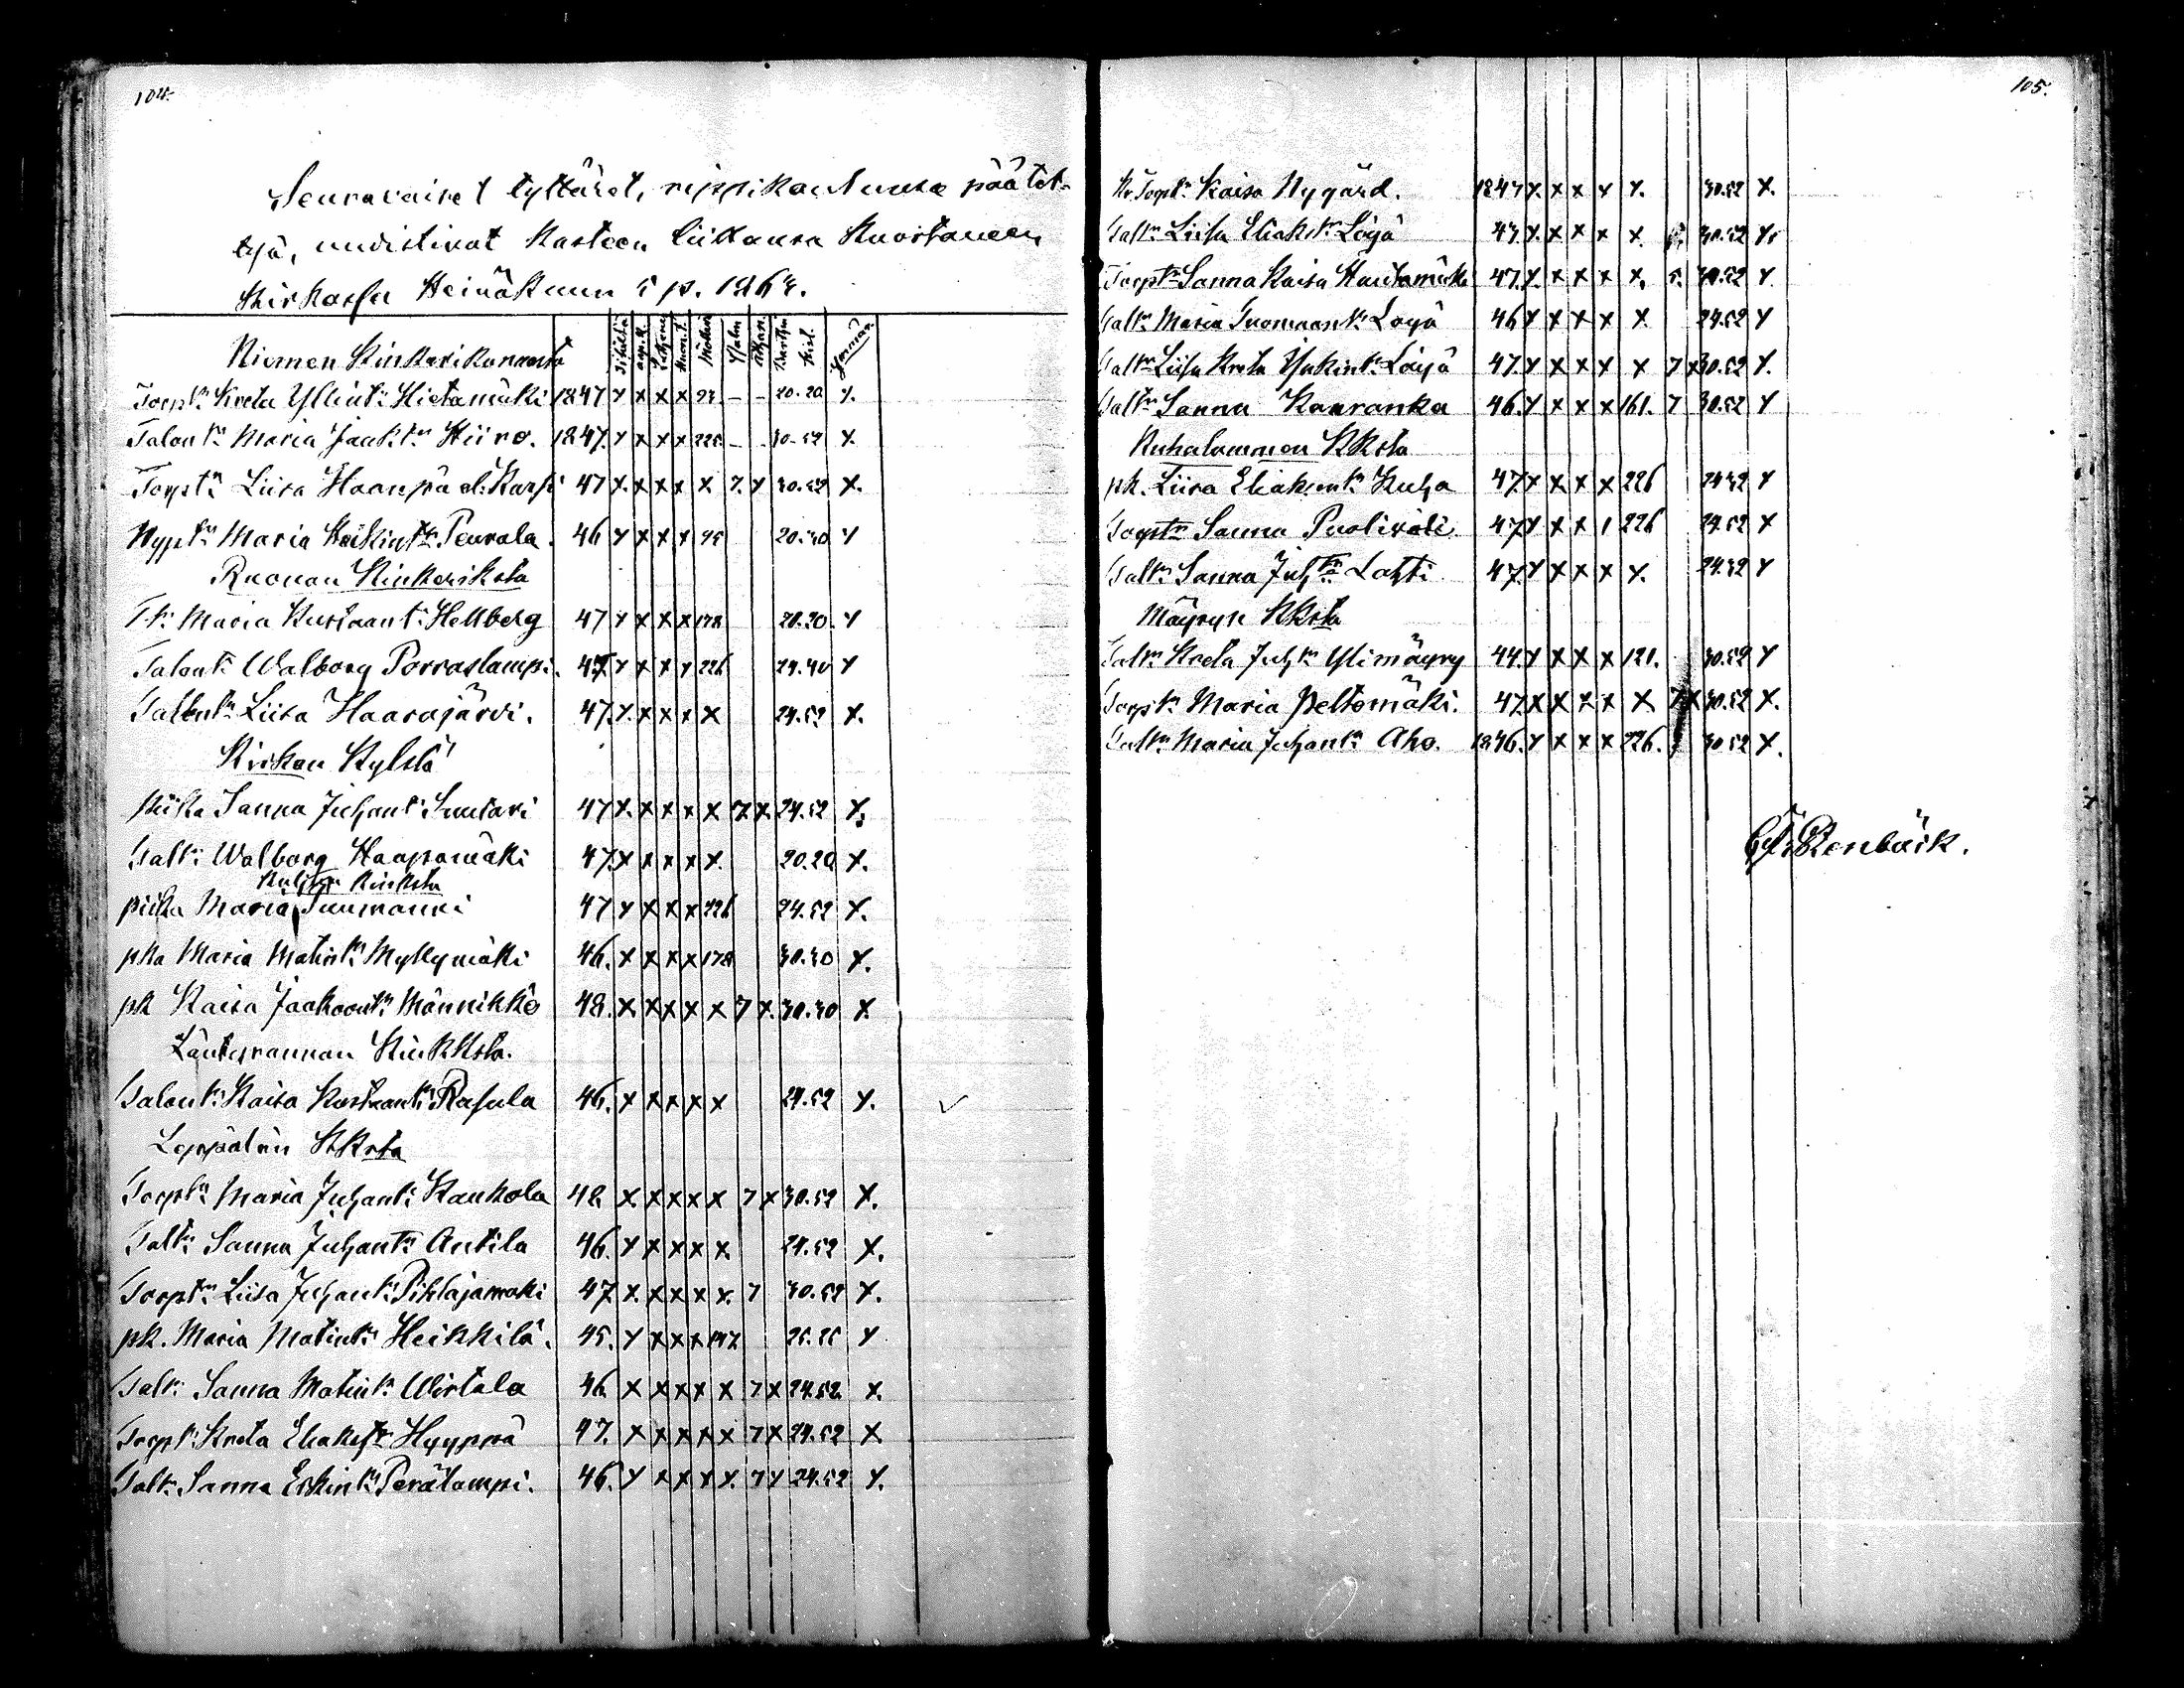 104.
Seuraavaiset tyttäret, rippikoulunsa päätet-
tyä, uudistivat kasteen liittonsa Kuortaneen
kirkossa Heinäkuun 5 p. 1863.
Niemen Kinkerikunnasta
Torptr Kreta Yllint: Hietamäki 1847 x x x x - - 20.20 x.
Talontr Maria Jaak.tr Hiiro. 1847. x x x x 225. - - 30-52 x.
Torptr Liisa Haanpä el. Karhi 47 x. x x x x 7. x 30.52 x.
Maria Heikintr Peurala. 46 x x x x 20.30 x
Ruonan Kinkeriksta
Maria Kustaant: Hellberg 47 x x x x 178 20.20. x
Talont: Walborg Porraslampi. 47 x x x x 226 24.40 x
Talontr Liisa Haarajärvi. 47. x. x x x x 24.52 x.
Kirkon Kylstä
Piika Sanna Juhant: Suutari 47 x. x x x x 7 x. 24.52 x.
Talt: Walborg Haapamäki 47. x x x x x. 20.20 x.
Kinksta
piika Maria 47 x x x x 226 24.52 x.
pka Maria Matintr Myllymäki 46. x x x x 178 30.30 x.
pk Kaisa Jaakoontr Männikkö 48. x x x x x 7 x. 30.30 x.
Länsirannan Kinkksta.
Talontr Kaisa Kustaantr Rasula 46. x x x x x 24.52 x.
Leppälän Kksta
Torptr Maria Juhant: Kaukola 48 x x x x x 7 x 30.52 x.
Taltr Sanna Juhantr Antila 46. x x x x x 24.52 x.
Torptr Liisa Juhant: Pihlajamäki 47. x. x x x x. 7 30.52 x.
pk. Maria Matintr Heikkilä. 45. x x x x 147 25.25 x
Talt: Sanna Matintr Wirtala 46 x x x x x 7 x 24.52. x.
Torpt: Kreta Eliakstr Hyyppä 47. x x x x x 7 x 24.52 x
Talt: Sanna Erkintr Perälampi. 46. x x x x x. 7 x 24.52 x.
105.
Torptr Kaisa Nygård. 1847 x. x x x x. 30.52 x.
Taltr Liisa Eliakstr Löyä 47. x. x x x x. 30.52 x.
Torptr Sanna Kaisa Hautamäki 47. x. x x x x. 5. 30.52 x.
Taltr Maria Tuomaantr Löyä 46 x x x x x. 24.52 x
Taltr Liisa Kreta Löyä 47. x x x x x 7 x 30.52 x.
Taltr Sanna Kauranka 46. x x x x 161. 7 30.52 x
Kuhalammen Kksta
pk. Liisa Eliakentr Kuha 47. x x x x 226 24.52 x
Torptr Sanna Puoliväli 47 x x x 1 226 24.52 x
Taltr Sanna Juhtr Lahti 47. x x x x x. 24.52 x
Mäyryn Kksta
Taltr Kreta Juhtr Ylimäyry 44. x x x x 121. 30.52 x
Torptr Maria Peltomäki. 47. x x x x x. 7 x 30.52 x.
Taltr Maria Juhantr Aho. 1846. x x x x 226. 30.52 x.
Stenbäck.